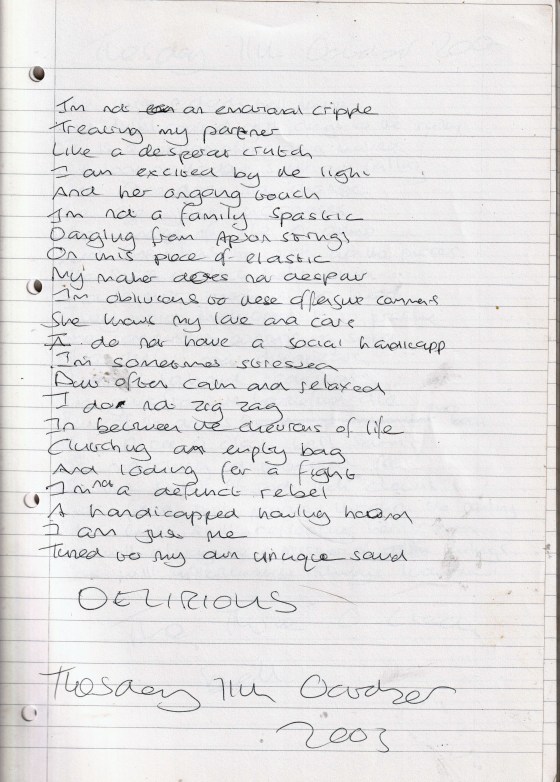 I'm not an emotional cripple
Treating my partner
Like a desperat crutch
I am excited by the light
And her ongoing touch
I'm not a family spastic
Dangling from Apron strings
On this piece of elastic
My mother does not despair
I'm oblivious to these offensive comments
She knows my love and care
I do not have a social handicapp
I'm sometimes stressed
But often calm and relaxed
I do not zig zag
In between the chevrons of life
Clutching an empty bag
And looking for a fight
I'm not a defunct rebel
A handicapped howling hound
I am just me
Tuned to my own unique sound
DELIRIOUS
11th October
2003